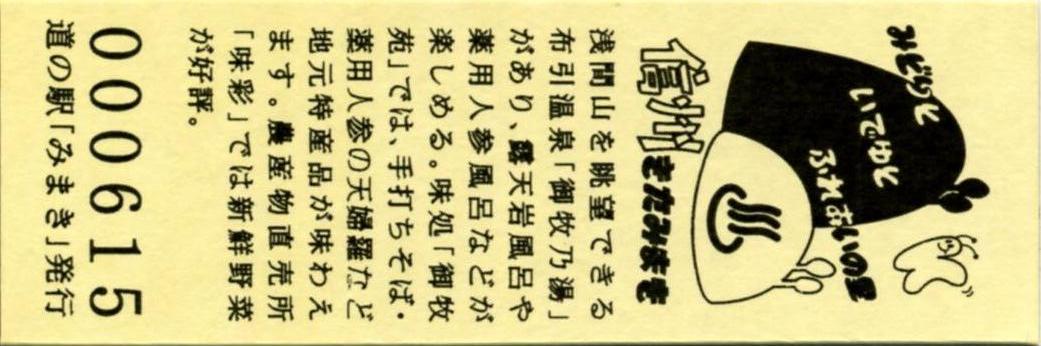 みどりと
いでゆと
ふれあいの里
信州きたみまき
浅間山を眺望できる
布引温泉「御牧乃湯」
があり、露天岩風呂や
薬用人参風呂などが
楽しめる。味処「御牧
苑」では、手打ちそば・
薬用人参の天婦羅など
地元特産品が味わえ
ます。農産物直売所
「味彩」では新鮮野菜
が好評。
000615
道の駅「みまき」発行